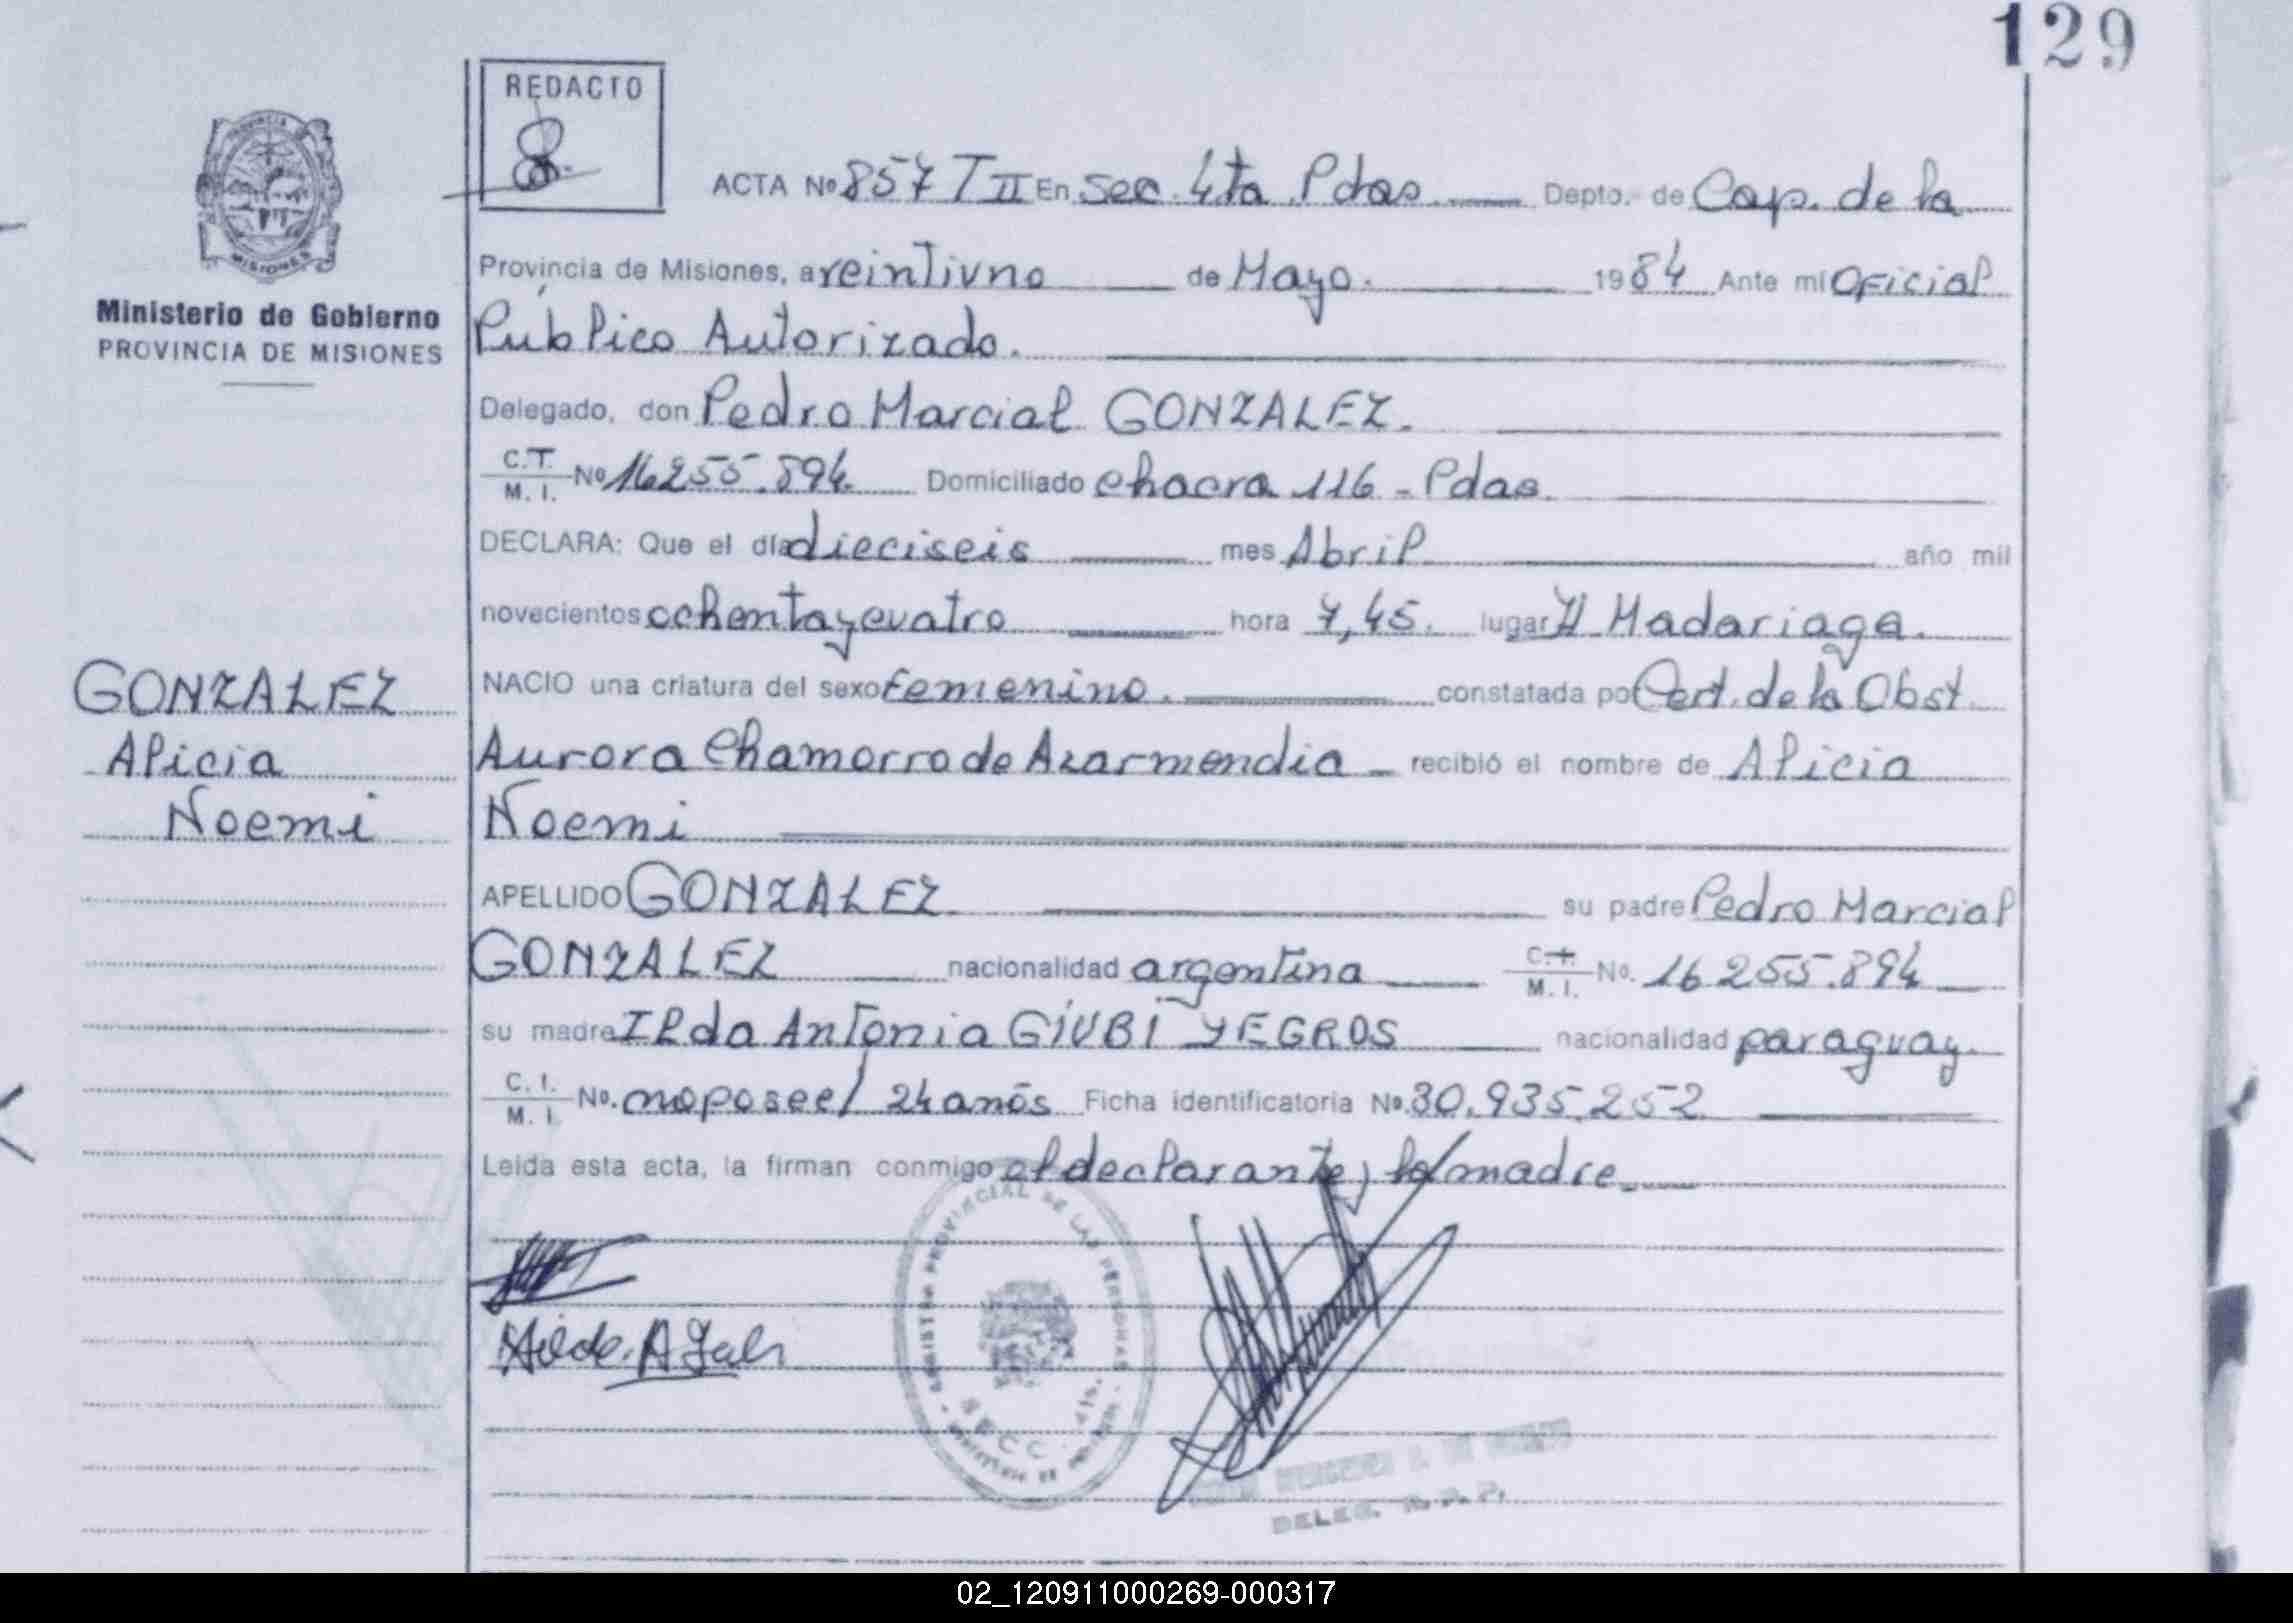 129
REDACTO
ACTA Nº 857 T II En Sec. 4ta Pdas. Depto. de Cap. de la
Provincia de Misiones, a veintiuno de Mayo. 1984 Ante mí Oficial
Ministerio de Gobierno
PROVINCIA DE MISIONES
Público Autorizado.
Delegado, don Pedro Marcial GONZALEZ.
C.T. M. I. Nº 16.255.894. Domiciliado chacra 116 - Pdas.
DECLARA: Que el día dieciseis mes Abril año mil
novecientos ochentaycuatro hora 7,45. lugar H Madariaga.
GONZALEZ
NACIO una criatura del sexo femenino. constatada po Cert. de la Obst.
Alicia
Aurora Chamorro de Azarmendia recibió el nombre de Alicia
Noemi
Noemi
APELLIDO GONZALEZ su padre Pedro Marcial
GONZALEZ nacionalidad argentina C.I. M. I. No. 16.255.894
su madre Ilda Antonia GIUBI YEGROS nacionalidad paraguay.
C. I. M. I. No. no posee/ 24 años Ficha identificatoria Nº 30.935.252
Leída esta acta, la firman conmigo el declarante y la madre.
PROVINCIAL DE LAS PERSONAS
SECC.
MISIONES
PROVINCIA DE
MISIONES
DELEG. R. P. P.
02_120911000269-000317